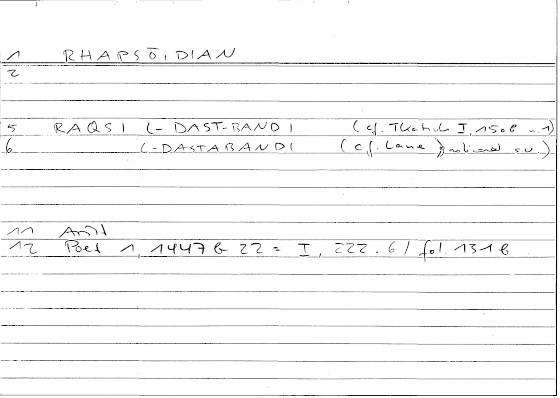 1 RHAPSŌIDIAN
2
5 RAQSI L-DAST-BANDI (cf. Tkatsch I, 150b n.1)
6 L-DASTABANDI (cf. Lane s.v.)
11 Arist
12 Poet 1, 1447b 22 = I, 222.6 / fol 131b